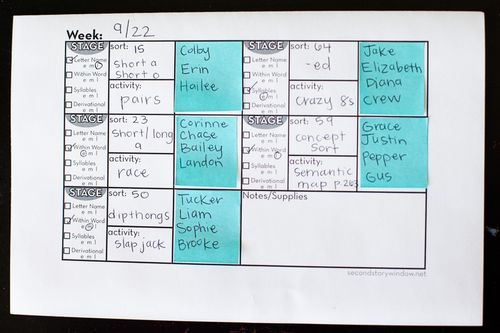 Week: 9/22
STAGE
Letter Name
e m l
Within Word
e m l
Syllables
e m l
Derivational
e m l
sort: 15
short a
short o
activity:
pairs
Colby
Erin
Hailee
STAGE
Letter Name
e m l
Within Word
e m l
Syllables
e m l
Derivational
e m l
sort: 64
-ed
activity:
crazy 8's
Jake
Elizabeth
Diana
Crew
STAGE
Letter Name
e m l
Within Word
e m l
Syllables
e m l
Derivational
e m l
sort: 23
short/long
a
activity:
race
Corinne
Chase
Bailey
Landon
STAGE
Letter Name
e m l
Within Word
e m l
Syllables
e m l
Derivational
e m l
sort: 59
concept
sort
activity:
semantic
map p.263
Grace
Justin
Pepper
Gus
STAGE
Letter Name
e m l
Within Word
e m l
Syllables
e m l
Derivational
e m l
sort: 50
dipthongs
activity:
slap jack
Tucker
Liam
Sophie
Brooke
Notes/Supplies
secondstorywindow.net